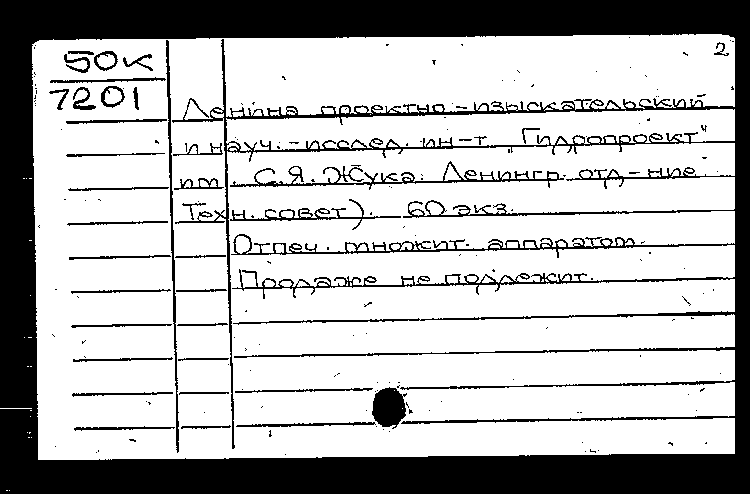 2
50к
7201
Ленина проектно-изыскательский
и науч.-исслед. ин-т „Гидропроект"
им. С.Я. Жука. Ленингр. отд-ние
Техн. совет). 60 экз.
Отпеч. множит. аппаратом.
Продаже не подлежит.